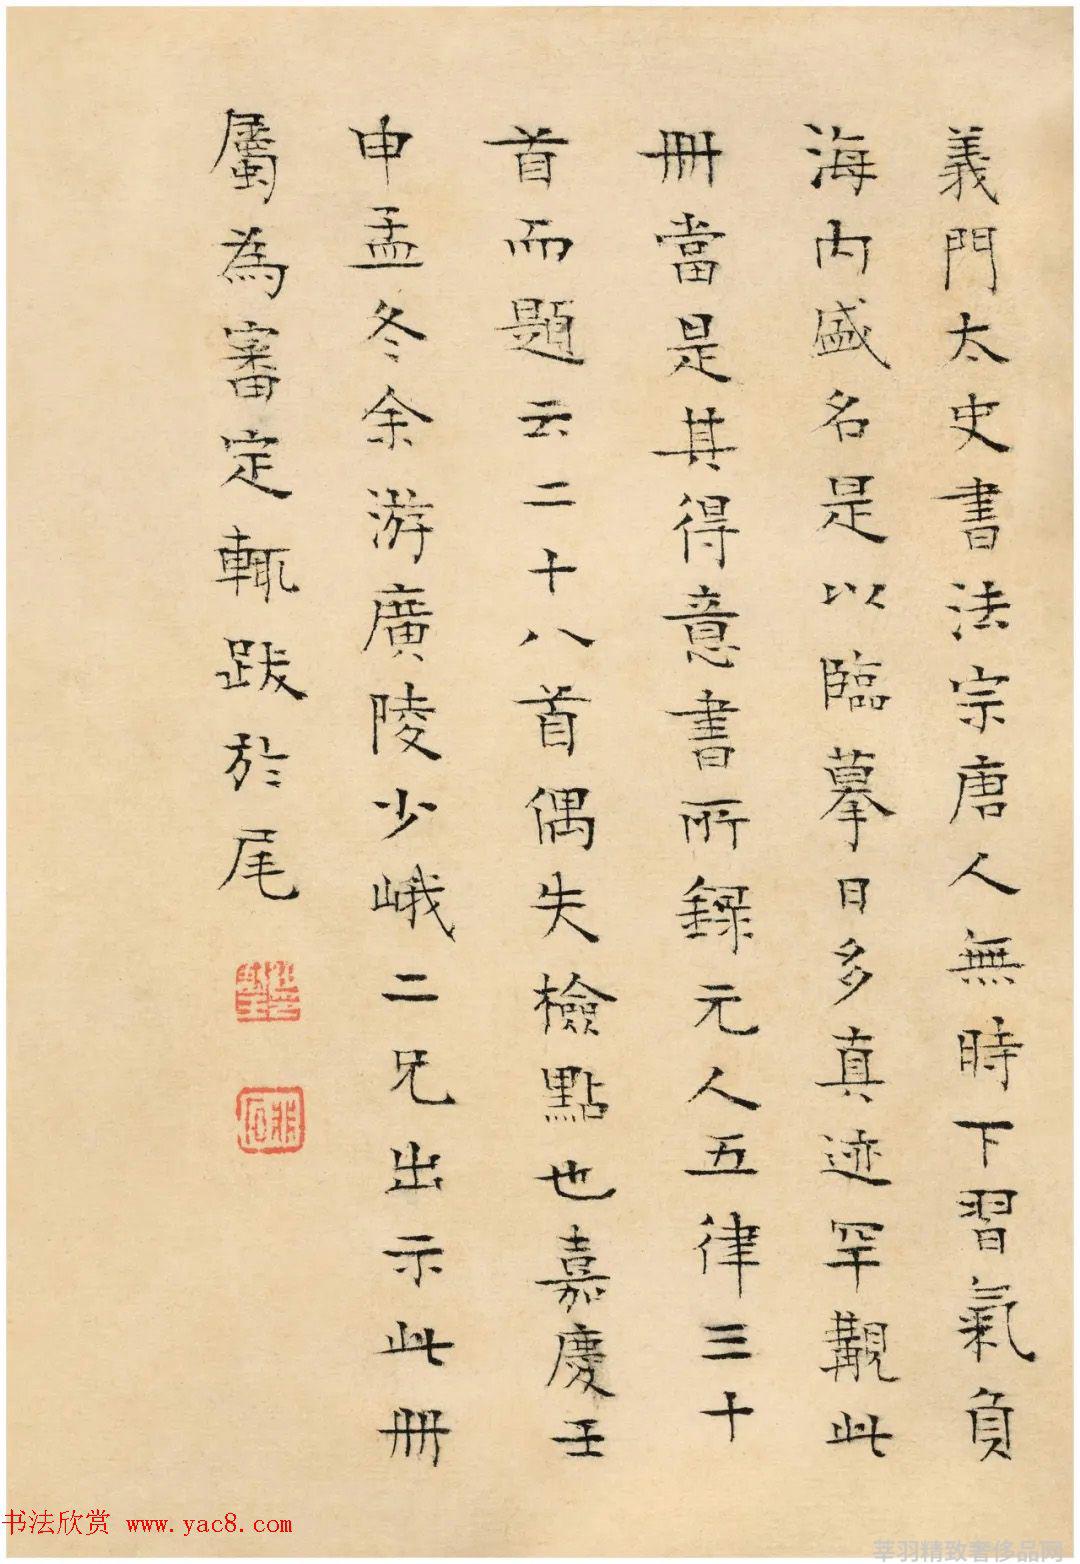 義門太史書法宗唐人無時下習氣負
海內盛名是以臨摹日多真迹罕覯此
冊當是其得意書所錄元人五律三十
首而題云二十八首偶失檢點也嘉慶壬
申孟冬余游廣陵少峨二兄出示此冊
屬為審定輒跋於尾
书法欣赏 www.yac8.com
莘羽精致奢侈品网